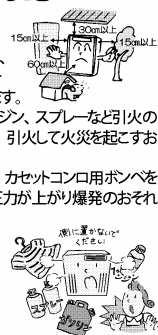 30cm以上
15cm以上
15cm以上
60cm以上
す。
ジン、スプレーなど引火の
引火して火災を起こすお
カセットコンロ用ボンベを
圧力が上がり爆発のおそれ
側に置かないで
ください
ガソリン